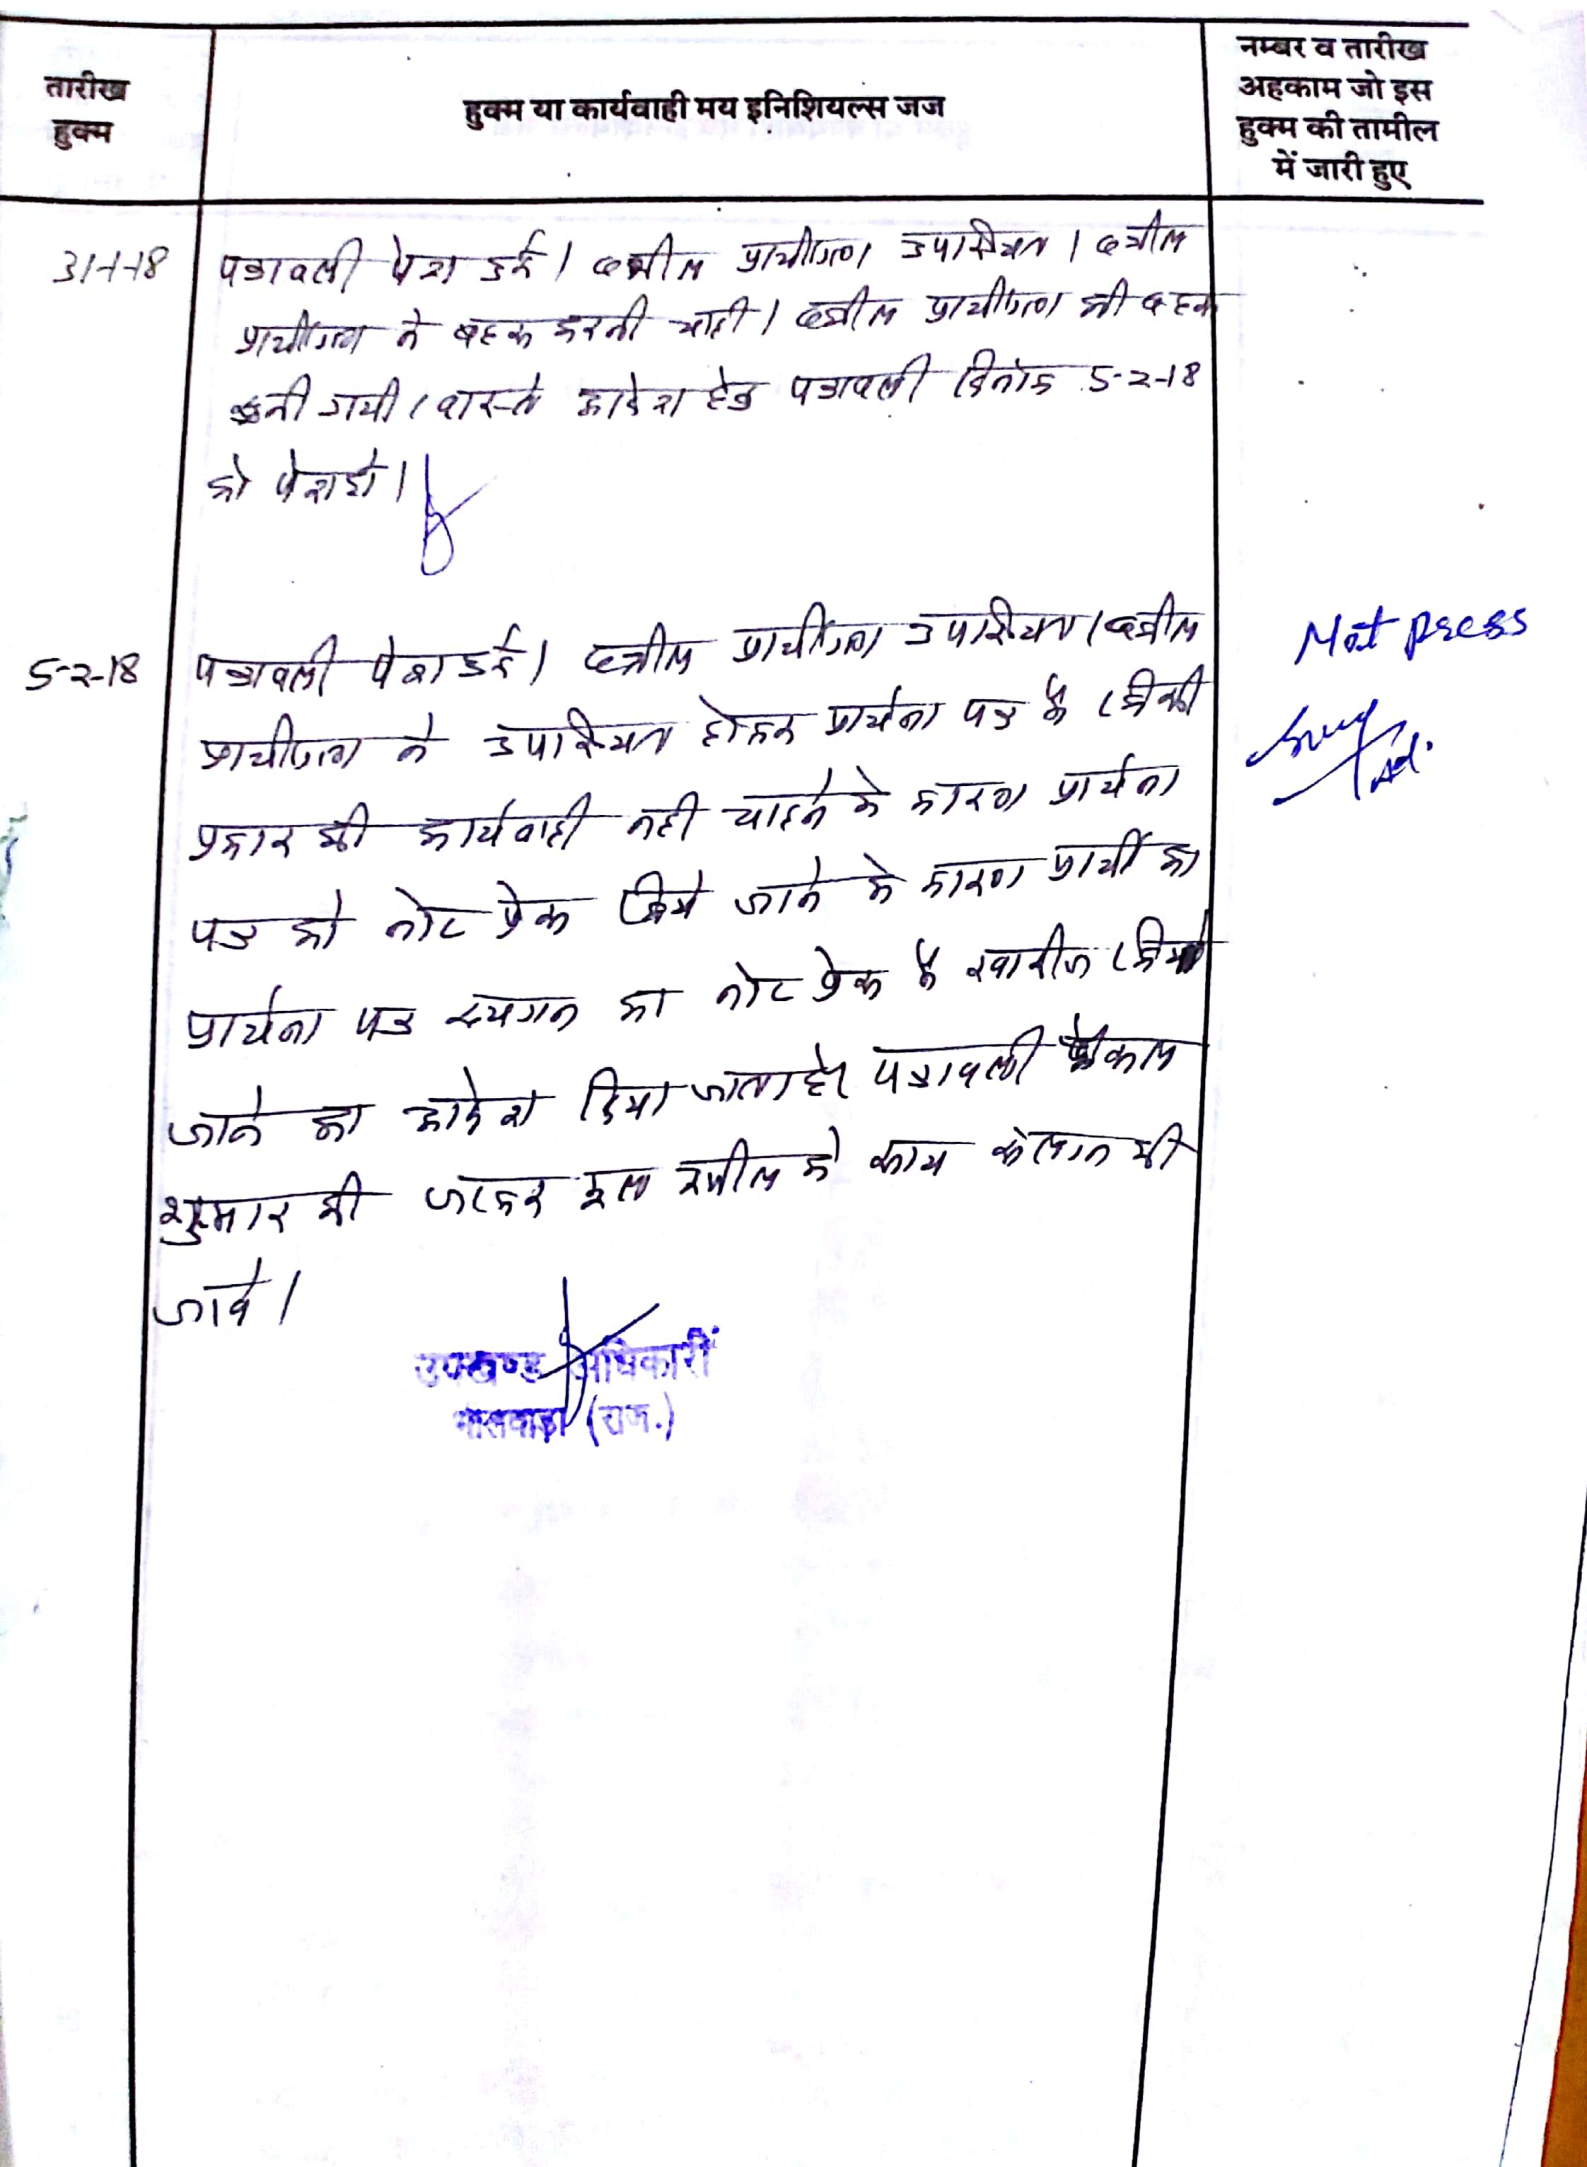 तारीख
हुक्म
हुक्म या कार्यवाही मय इनिशियल्स जज
नम्बर व तारीख
अहकाम जो इस
हुक्म की तामील
में जारी हुए
31-1-18
पत्रावली पेश हुई। वकील प्रार्थीगण उपस्थित। वकील
प्रार्थीगण ने बहस करनी चाही। वकील प्रार्थीगण की बहस
सुनी गयी। वास्ते आदेश हेतु पत्रावली दिनांक 5-2-18
को पेश हो।
5-2-18
पत्रावली पेश हुई। वकील प्रार्थीगण उपस्थित। वकील
प्रार्थीगण ने उपस्थित होकर प्रार्थना पत्र में किसी
प्रकार की कार्यवाही नही चाहने के कारण प्रार्थना
पत्र को नोट प्रेस किये जाने के कारण प्रार्थी का
प्रार्थना पत्र स्थगन का नोट प्रेस में खारीज किये
जाने का आदेश दिया जाता है। पत्रावली फैसल
शुमार की जाकर मूल को साथ की
जावे।
Not press
Ad.
उपखण्ड अधिकारी
(राज.)